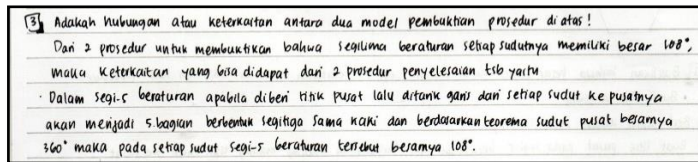 3. Adakah hubungan atau keterkaitan antara dua model pembuktian prosedur di atas!
Dari 2 prosedur untuk membuktikan bahwa segilima beraturan setiap sudutnya memiliki besar 108°,
maka keterkaitan yang bisa didapat dari 2 prosedur penyelesaian tsb yaitu
· Dalam segi-5 beraturan apabila diberi titik pusat lalu ditarik garis dari setiap sudut ke pusatnya
akan menjadi 5 bagian berbentuk segitiga sama kaki dan berdasarkan teorema sudut pusat besarnya
360° maka pada setiap sudut segi-5 beraturan tersebut besarnya 108°.